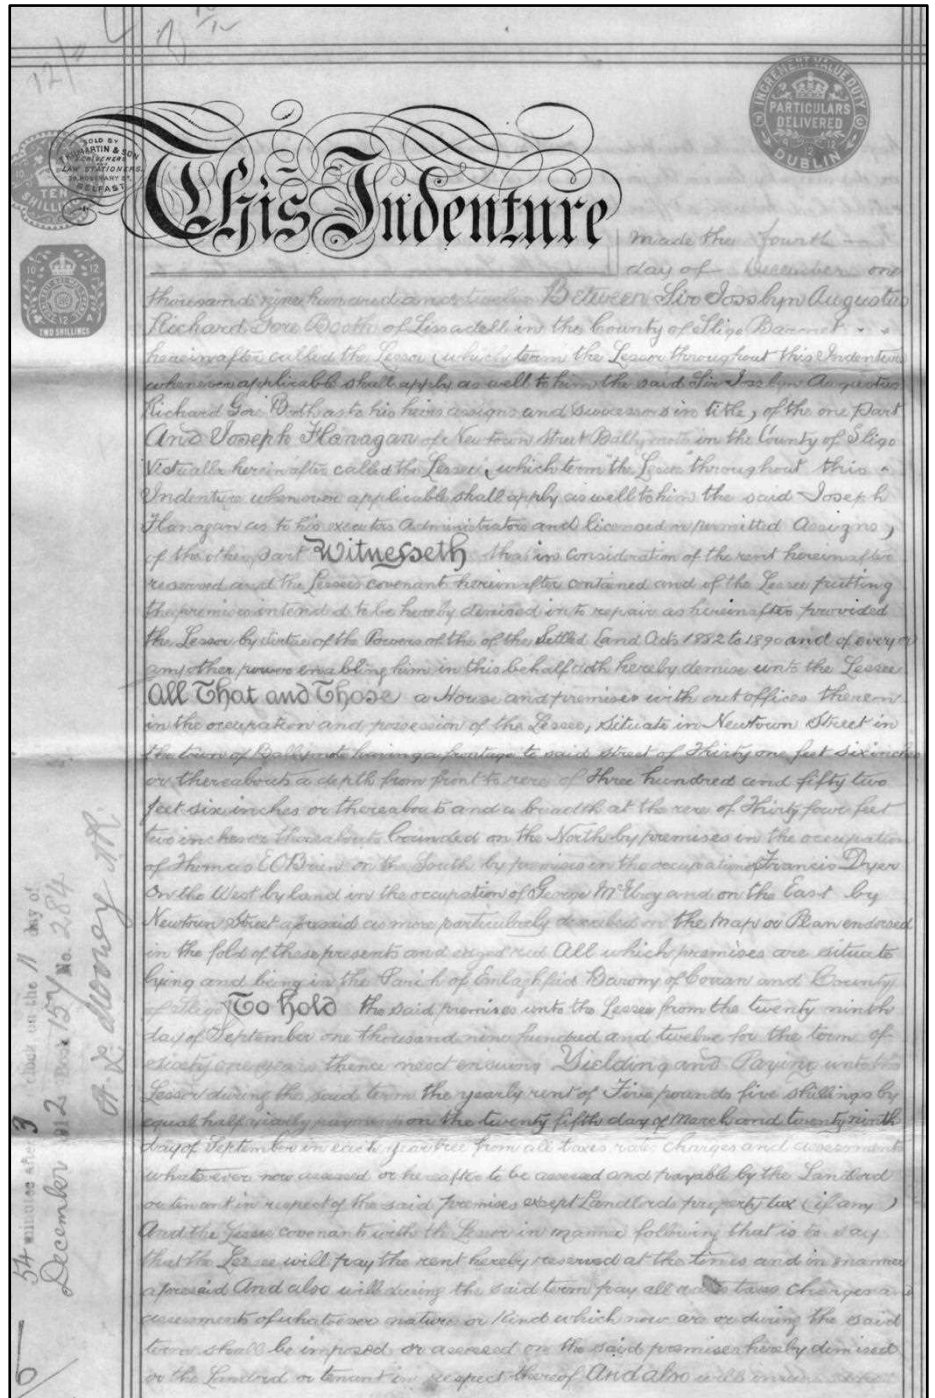 12/-
SOLD BY
MARTIN & SON
LAW STATIONERS
BELFAST
TEN
SHILLINGS
TWO SHILLINGS
INCREMENT VALUE DUTY
PARTICULARS
DELIVERED
DUBLIN
This Indenture made the fourth
day of December one
thousand nine hundred and twelve Between Sir Josslyn Augustus
Richard Gore Booth of Lissadell in the County of Sligo Baronet
hereinafter called the Lessor (which term the Lessor throughout this Indenture
whenever applicable shall apply as well to him the said Sir Josslyn Augustus
Richard Gore Booth as to his heirs assigns and successors in title) of the one Part
And Joseph Flanagan of Newtown Street Ballymote in the County of Sligo
Victualler hereinafter called the Lessee, which term "the Lessee" throughout this
Indenture whenever applicable shall apply as well to him the said Joseph
Flanagan as to his executors administrators and licensed or permitted Assigns,
of the other part Witnesseth that in consideration of the rent hereinafter
reserved and the Lessees covenant hereinafter contained and of the Lessee putting
the premises intended to be hereby demised into repair as hereinafter provided
the Lessor by virtue of the Powers of the of the Settled Land Acts 1882 to 1890 and of every or
any other power enabling him in this behalf doth hereby demise unto the Lessee
All That and Those a House and premises with out offices therein
in the occupation and possession of the Lessee, situate in Newtown Street in
the town of Ballymote having a frontage to said street of Thirty one feet six inches
or thereabouts a depth from front to rere of Three hundred and fifty two
feet six inches or thereabouts and a breadth at the rere of Thirty four feet
two inches or thereabouts bounded on the North by premises in the occupation
of Thomas E OBrien on the South by premises in the occupation Francis Dyer
On the West by land in the occupation of George McEvoy and on the East by
Newtown Street aforesaid as more particularly described on the map or Plan endorsed
in the fold of these presents and edged red All which premises are situate
lying and being in the Parish of Emlaghfad Barony of Corran and County
of Sligo To hold the said premises unto the Lessee from the twenty ninth
day of September one thousand nine hundred and twelve for the term of
sixty one years thence next ensuing Yielding and Paying unto the
Lessor during the said term the yearly rent of Five pounds five shillings by
equal half yearly payments on the twenty fifth day of March and twenty ninth
day of September in each year free from all taxes rates charges and assessments
whatsoever now assessed or hereafter to be assessed and payable by the Landlord
or tenant in respect of the said premises except Landlords property tax (if any)
And the Lessee covenants with the Lessor in manner following that is to say
that the Lessee will pay the rent hereby reserved at the times and in manner
aforesaid And also will during the said term pay all rates taxes charges and
assessments of whatsoever nature or kind which now are or during the said
term shall be imposed or assessed on the said premises hereby demised
or the Landlord or tenant in respect thereof And also will
54 minutes after 3 o'clock on the 11 day of
December 1912 Book 157 No. 284